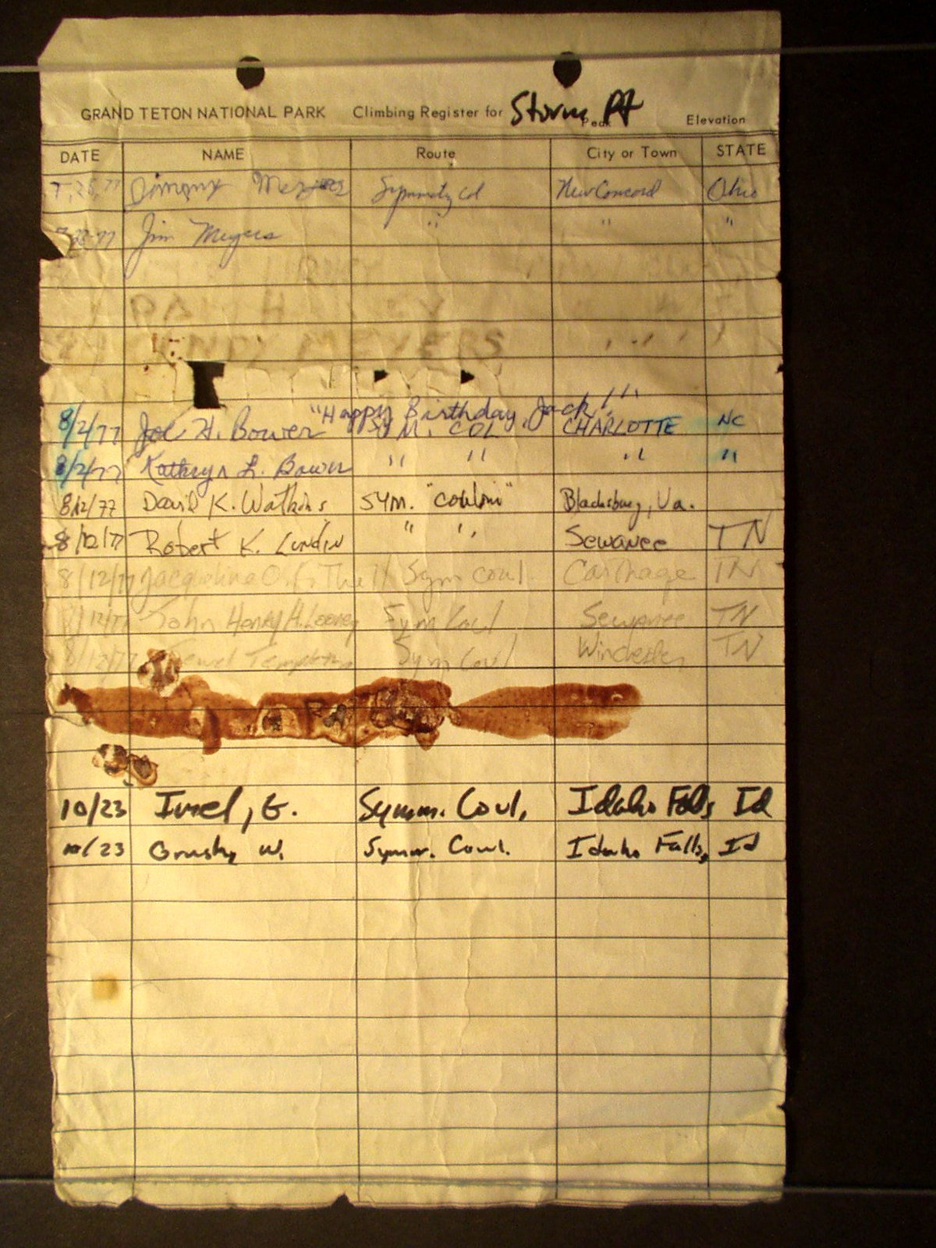 GRAND TETON NATIONAL PARK Climbing Register for Storm Pt Peak Elevation
DATE NAME Route City or Town STATE
Jimmy Symmetry Col New Concord Ohio
77 Jim Meyers " " "
MEYERS
"Happy Birthday, Jack!!!
8/2/77 Joe H. Bower SYM. COL CHARLOTTE NC
8/2/77 Kathryn L. Bower " " " "
8/12/77 David K. Watkins SYM. "couloir" Blacksburg, Va.
8/12/77 Robert K. Lundin " " Sewanee TN
8/12/77 Sym Coul. Carthage TN
8/12/77 John Henry H. Looney Sym Coul Sewanee TN
8/12/77 Jewel Templeton Sym Coul Winchester TN
10/23 Imel, G. Symm. Coul, Idaho Falls Id
10/23 W. Symm. Coul. Idaho Falls, Id